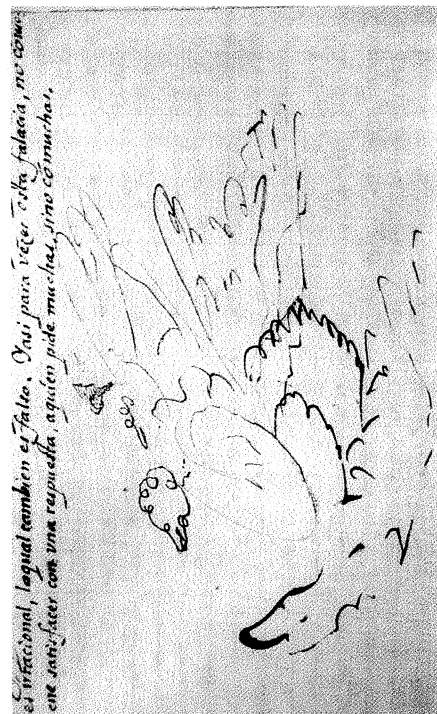 es irracional, laqual tambien es falso. Y asi para vẽçer esta falacia, no comu-
ene satisfacer com una respuesta, aquien pide muchas, sino cõ muchas.